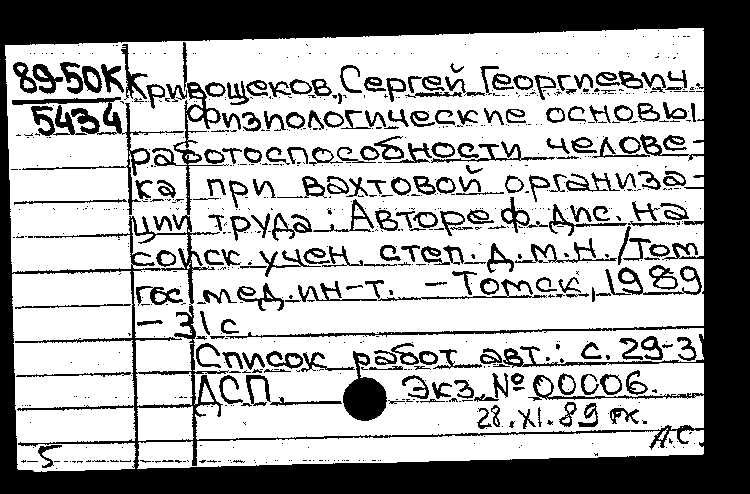 89-50К Кривощеков, Сергей Георгиевич.
5434 Физиологические основы
работоспособности челове-
ка при вахтовой организа-
ции труда: Автореф. дис. на
соиск. учен. степ. д.м.н. / Том
гос мед. ин-т. – Томск, 1989
– 31 с.
Список работ авт.: с. 29-31
ДСП. Экз. № 00006.
28.XI.89
А.С.
5